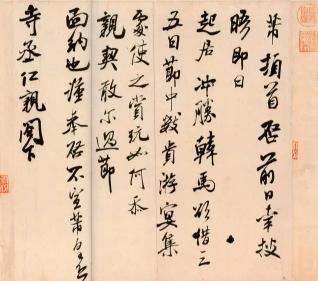 芾頓首啓前日幸披
晤即日
起居冲勝韓馬欲借三
五日節中數貴游宴集
處使之賞玩如何忝
親契敢尔過節
面納也謹奉啓不宣芾白上
寺丞仁親閣下